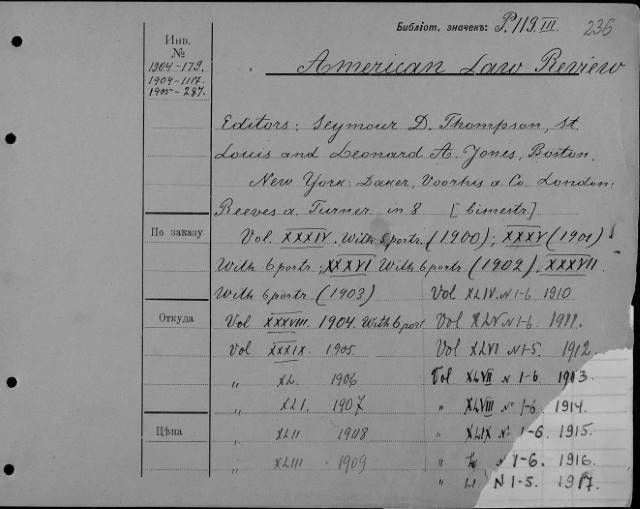 Библіот. значекъ: P. 119. III. 236
Инв.
№
1904-179.
1904-1117.
1905-287.
American Law Review
Editors: Seymour D. Thompson, St.
Louis and Leonard A. Jones, Boston,
New York: Daker, Voorhis a. Co. London:
Reeves a. Turner. in 8 [bimestr.]
По заказу
Vol. XXXIV. With 6 portr. (1900); XXXV (1901)
With 6 portr.; XXXVI With 6 portr. (1902). XXXVII.
With 6 portr. (1903)
Откуда
Vol XXXVIII. 1904. With 6 port
Vol XXXIX. 1905
„ XL. 1906
„ XLI. 1907
Цѣна
„ XLII 1908
„ XLIII 1909
Vol XLIV. N 1-6 1910
Vol XLV N 1-6. 1911.
Vol XLVI N 1-5. 1912
Vol XLVII N 1-6. 1913.
" XLVIII No 1-6. 1914.
" XLIX No 1-6. 1915.
" L N 1-6. 1916.
" LI N 1-5. 1917.